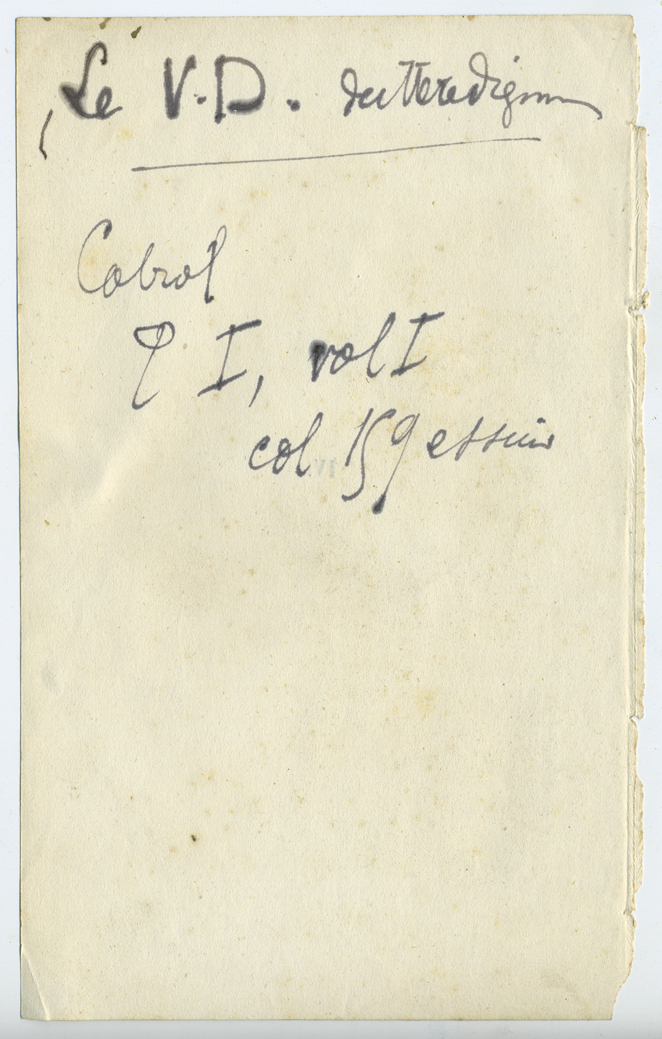 Le V.D. du Vere dignum
Cabrol
T I, vol I
col 159 et suiv